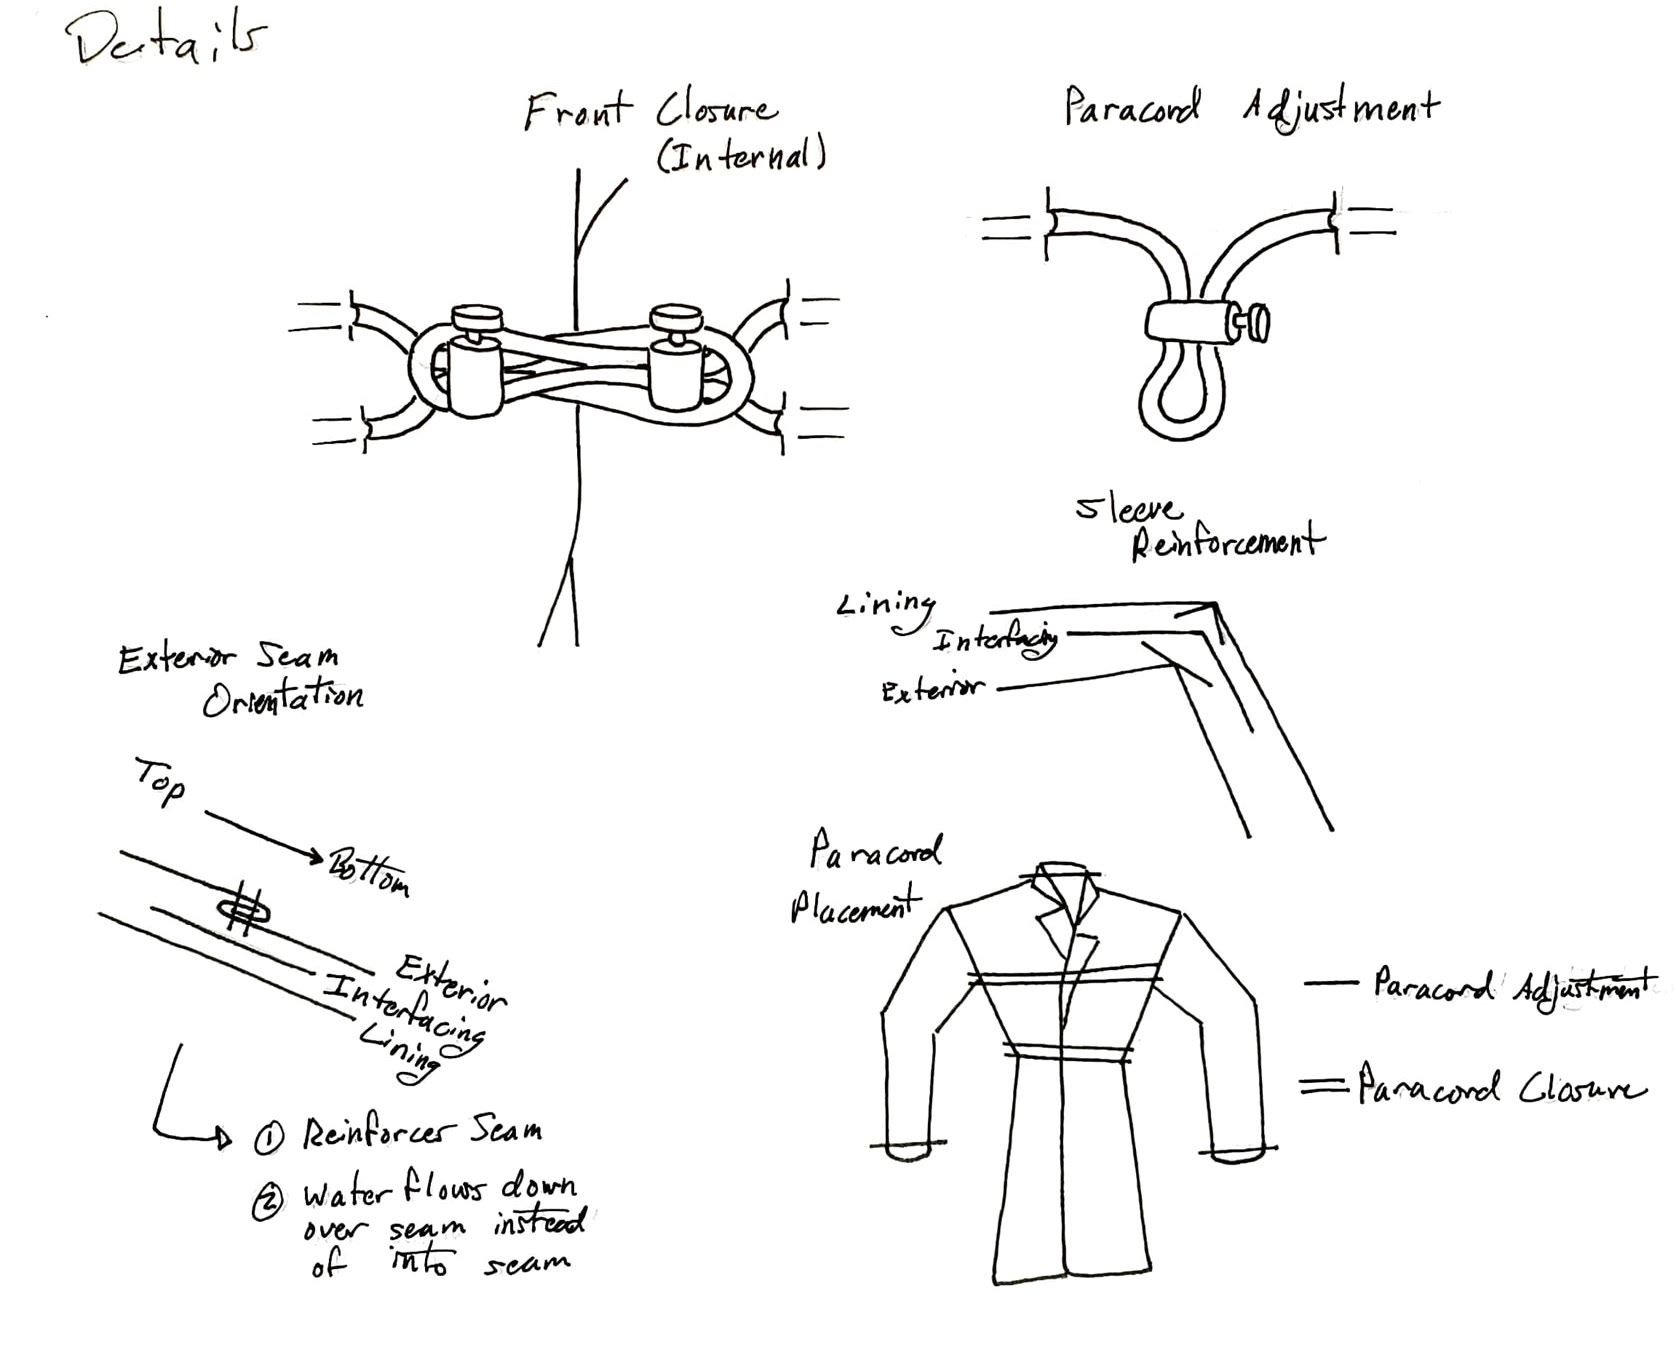 Details
Front Closure
(Internal)
Paracord Adjustment
Sleeve
Reinforcement
Lining
Interfacing
Exterior
Exterior Seam
Orientation
Top
Bottom
Exterior
Interfacing
Lining
① Reinforces Seam
② Water flows down
over seam instead
of into seam
Paracord
Placement
Paracord Adjustment
Paracord Closure